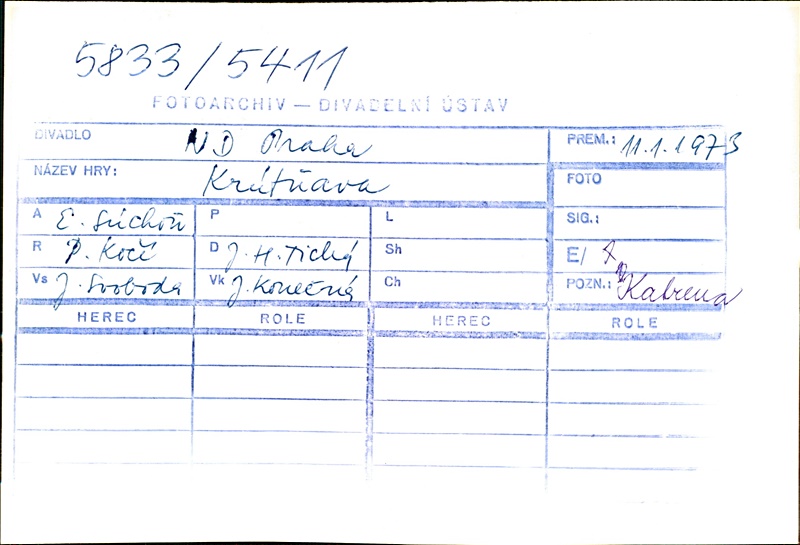 5833/5411
FOTOARCHIV — DIVADELNÍ ÚSTAV
DIVADLO ND Praha PREM.: 11.1.1973
NÁZEV HRY: Krútňava FOTO
A E. Suchoň P L SIG.:
R P. Kočí D J. H. Tichý Sh E/
Vs J. Svoboda Vk J. Konečná Ch POZN.:
HEREC ROLE HEREC ROLE